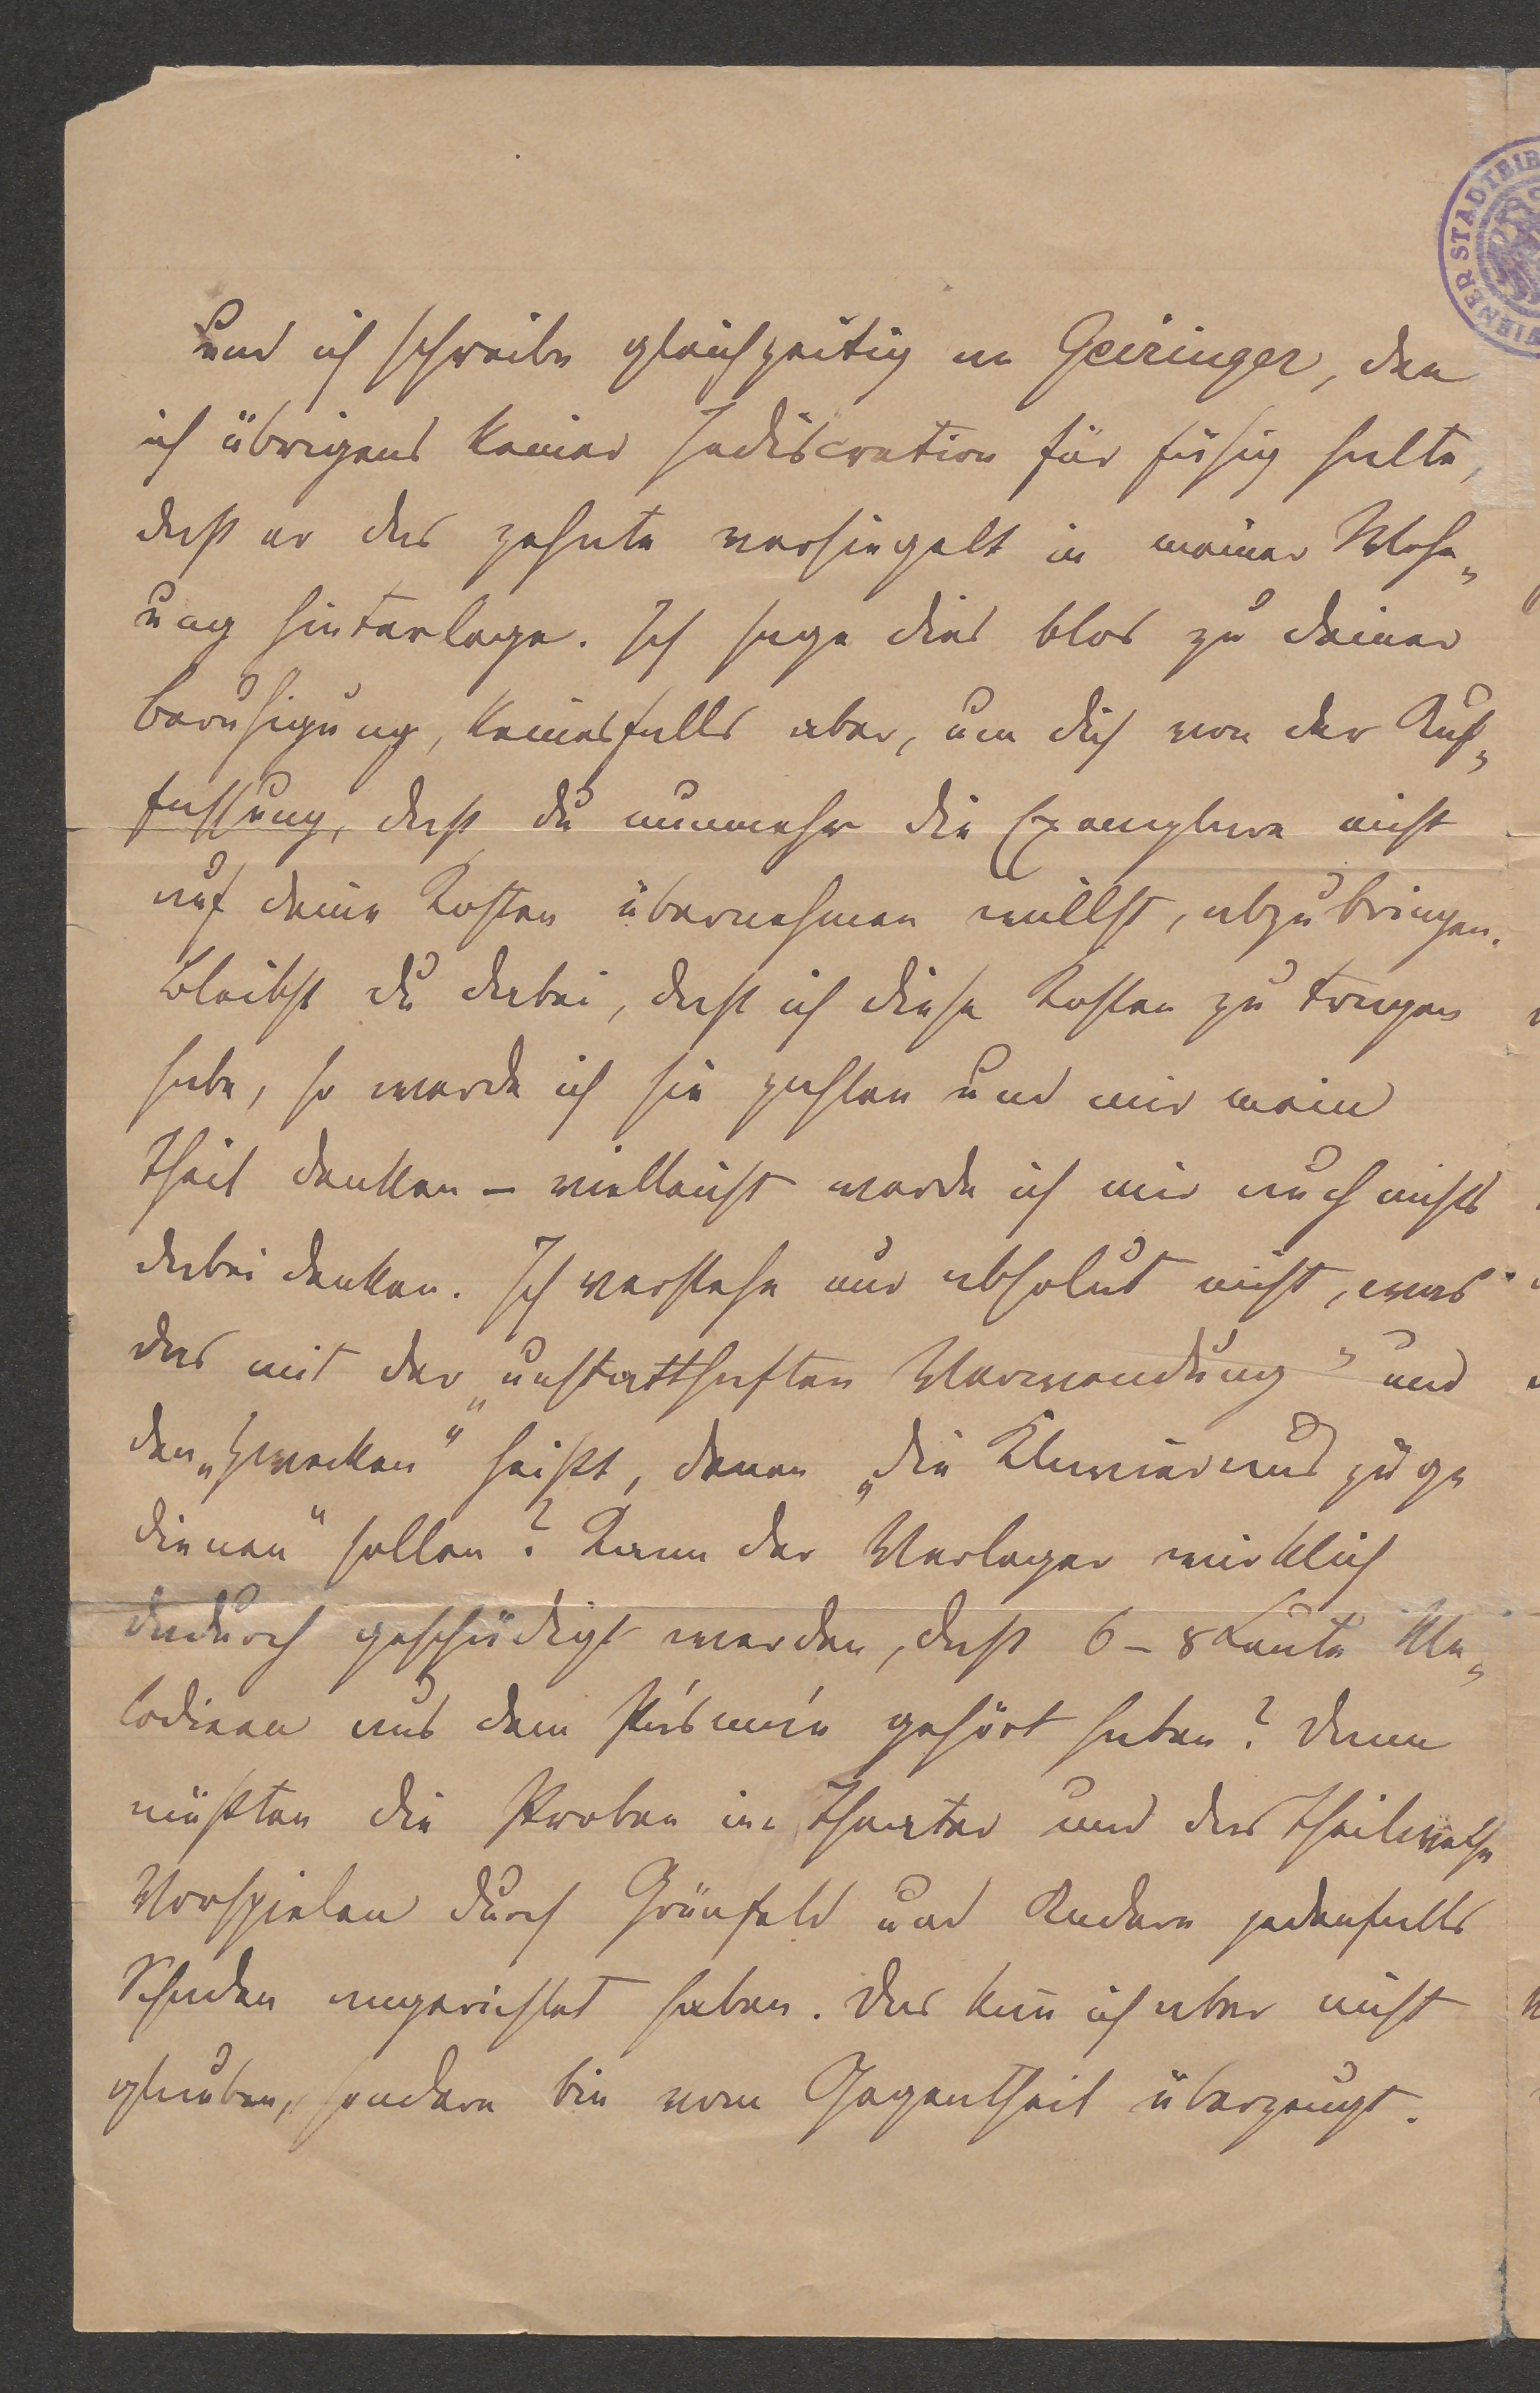 und ich schreibe gleichzeitig an Geiringer, den
ich übrigens keiner Indiscretion für fähig halte,
daß er das zehnte versiegelt in meiner Wohn„
ung hinterlege. Ich sage dies blos zu deiner
Beruhigung, keinesfalls aber, um dich von der Auf„
fassung, daß du nunmehr die Exemplare nicht
auf deine Kosten übernehmen willst, abzubringen.
Bleibst du dabei, daß ich diese Kosten zu tragen
habe, so werde ich sie zahlen und mir mein
Theil denken – vielleicht werde ich mir auch nichts
dabei denken. Ich verstehe nur absolut nicht, was
das mit der „unstatthaften Verwendung" und
den „Zwecken" heißt, denen „die Klavierauszüge
dienen" sollen? Kann der Verleger wirklich
dadurch geschädigt werden, daß 6–8 Leute Me„
lodieen aus dem Pásmán gehört haben? Dann
müßten die Proben im Theater und das theilweise
Vorspielen durch Grünfeld und Andere jedenfalls
Schaden angerichtet haben. Das kan̄ ich aber nicht
glauben, sondern bin vom Gegentheil überzeugt.
WIENER STADTBIB